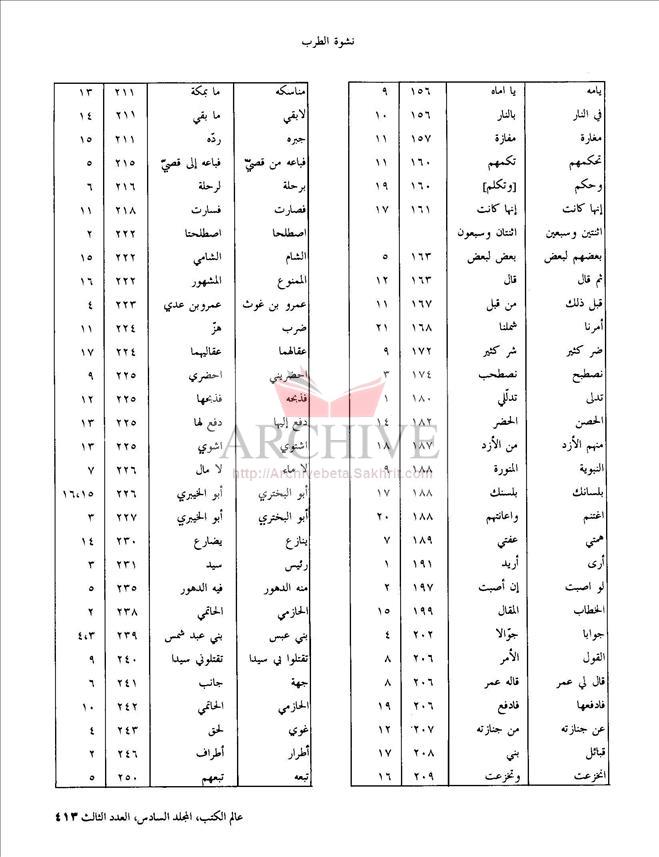 نشوة الطرب
يامه يا اماه ١٥٦ ٩
في النار بالنار ١٥٦ ١٠
مغارة مفازة ١٥٧ ١١
تحكمهم تكمهم ١٦٠ ١١
وحكم [وتكلم] ١٦٠ ١٩
إنها كانت إنها كانت ١٦١ ١٧
اثنتين وسبعين اثنتان وسبعون
بعضهم لبعض بعض لبعض ١٦٣ ٥
ثم قال قال ١٦٣ ١٢
قبل ذلك من قبل ١٦٧ ١١
أمرنا شملنا ١٦٨ ٢١
ضر كثير شر كثير ١٧٢ ٩
نصطبح نصطحب ١٧٤ ٣
تدلى تدلّلي ١٨٠ ١
الحصن الحضر ١٨٢ ١٤
منهم الأزد من الأزد ١٨٧ ١٨
النبوية المنورة ١٨٨ ٩
بلسانك بلسنك ١٨٨ ١٧
اغتنم واعانتهم ١٨٨ ٢٠
همتي عفتي ١٨٩ ٧
أرى أريد ١٩١ ١
لو اصبت إن أصبت ١٩٧ ٢
الخطاب المقال ١٩٩ ١٥
جوابا جوّالا ٢٠٢ ٤
القول الأمر ٢٠٦ ٨
قال لي عمر قاله عمر ٢٠٦ ٨
فادفعها فادفع ٢٠٦ ١٩
عن جنازته من جنازته ٢٠٧ ١٢
قبائل بني ٢٠٨ ١٧
انخزعت وتخزعت ٢٠٩ ١٦
مناسكه ما بمكة ٢١١ ١٣
لابقي ما بقي ٢١١ ١٤
جبره ردّه ٢١١ ١٥
فباعه من قصيّ فباعه إلى قصيّ ٢١٥ ٥
برحلة لرحلة ٢١٦ ٦
فصارت فسارت ٢١٨ ١١
اصطلحا اصطلحتا ٢٢٢ ٢
الشام الشامي ٢٢٢ ١٥
الممنوع المشهور ٢٢٢ ١٦
عمرو بن غوث عمروبن عدي ٢٢٣ ٤
ضرب هزّ ٢٢٤ ١١
عقالهما عقاليهما ٢٢٤ ١٧
احضريني احضري ٢٢٥ ٩
فذبحه فذبحها ٢٢٥ ١٢
دفع إليها دفع لها ٢٢٥ ١٣
اشتوي اشوي ٢٢٥ ١٣
لا ماء لا مال ٢٢٦ ٧
أبو البختري أبو الخيبري ٢٢٦ ١٦،١٥
أبو البختري أبو الخيبري ٢٢٧ ٣
ينازع يضارع ٢٣٠ ١٤
رئيس سيد ٢٣١ ٣
منه الدهور فيه الدهور ٢٣٥ ٥
الحازمي الحاتمي ٢٣٨ ٢
بني عبس بني عبد شمس ٢٣٩ ٤،٣
تقتلوا بي سيدا تقتلوني سيدا ٢٤٠ ٩
جهة جانب ٢٤١ ٦
الحازمي الحاتمي ٢٤٢ ١٠
غوي لحق ٢٤٣ ٤
أطرار أطراف ٢٤٦ ٢
تبعه تبعهم ٢٥٠ ٥
ARCHIVE
http://Archivebeta.Sakhrit.com
عالم الكتب، المجلد السادس، العدد الثالث ٤١٣